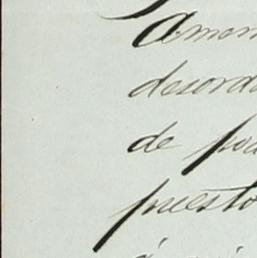 Amon
desord
de po
puesto